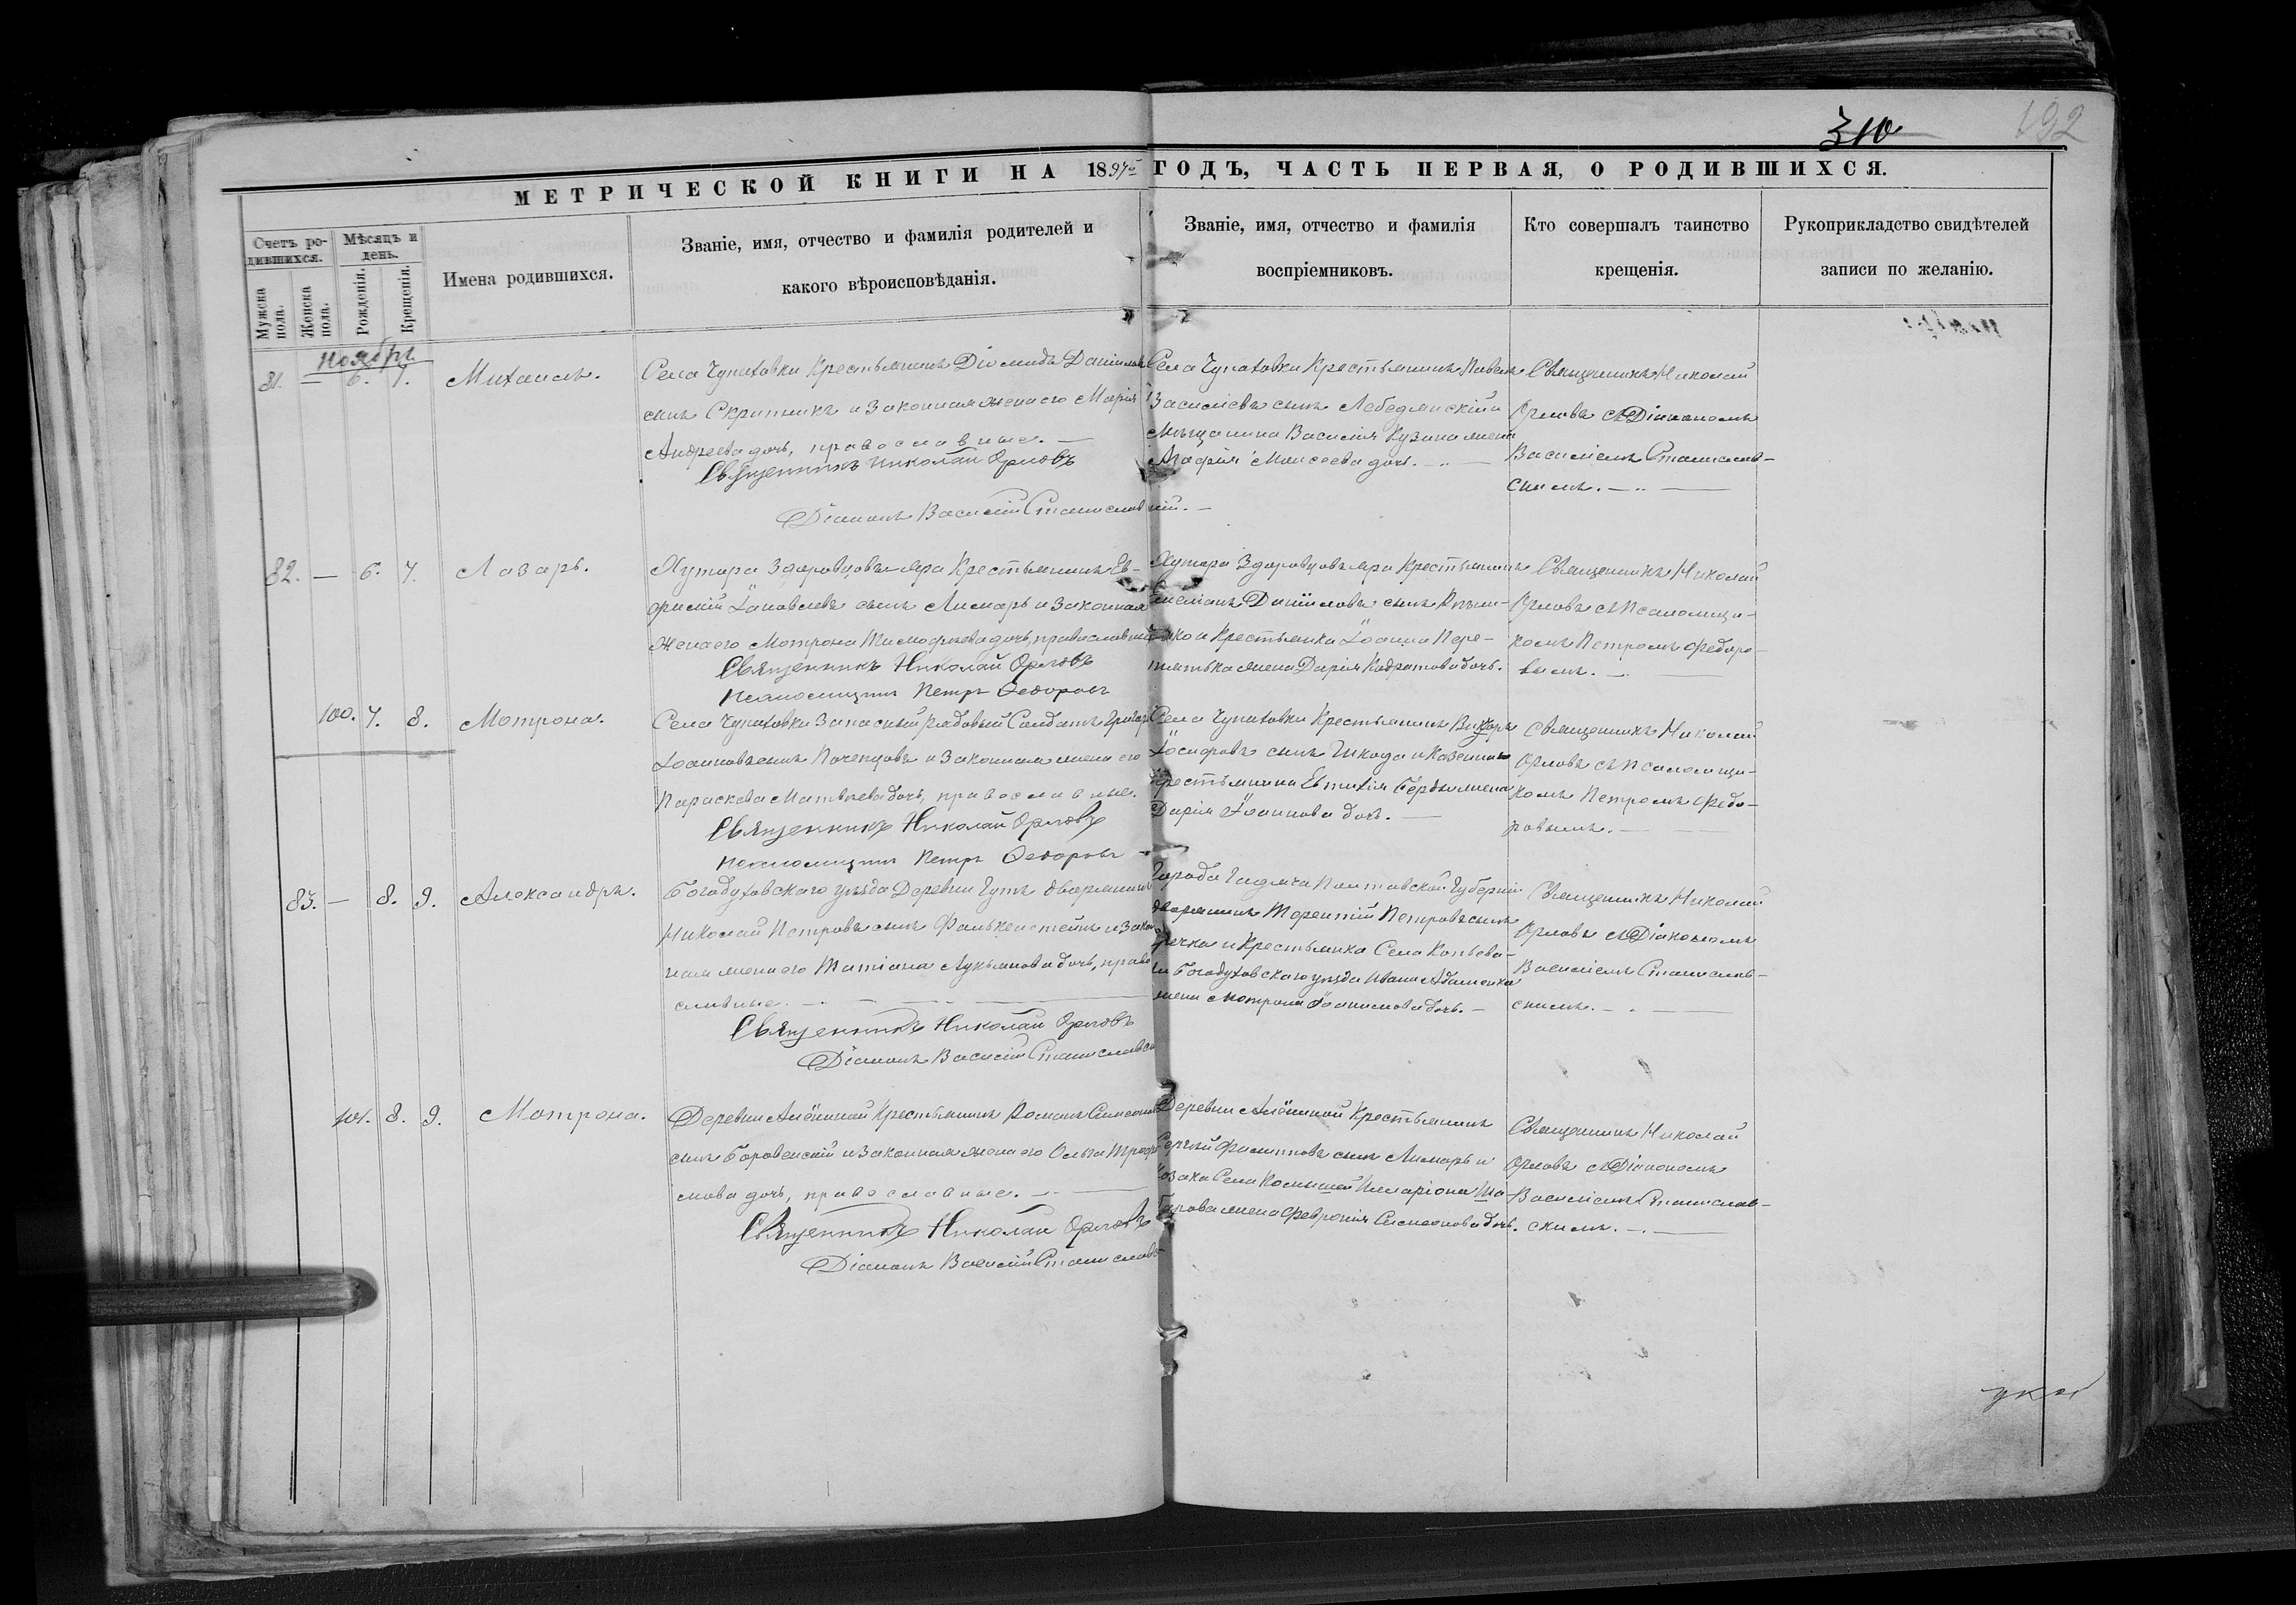 310
192
МЕТРИЧЕСКОЙ КНИГИ НА 1897й ГОДЪ, ЧАСТЬ ПЕРВАЯ, О РОДИВШИХСЯ.
Счетъ родившихся.
Мужеска пола.
Женска пола.
Мѣсяцъ и день.
Рожденія.
Крещенія.
Имена родившихся.
Званіе, имя, отчество и фамилія родителей и
какого вѣроисповѣданія.
Званіе, имя, отчество и фамилія
воспріемниковъ.
Кто совершалъ таинство
крещенія.
Рукоприкладство свидѣтелей
записи по желанію.
Ноябрь
81. — 6. 7. Михаилъ.
Села Чупаховки Крестьянинъ Діомидъ Даніиловъ
сынъ Скрипникъ и Законная жена его Марія
Андреева дочь, православные. —
Священникъ Николай Орловъ
Діаконъ Василій Станиславскій. —
Села Чупаховки Крестьянинъ Павелъ
Василіевъ сынъ Лебедянскій и
Мѣщанина Василія Кузина жена
Агафія Моисеева дочь. —
Священникъ Николай
Орловъ съ Діакономъ
Василіемъ Станислав-
скимъ. —
82. — 6. 7. Лазарь.
Хутора Здоровцова яра Крестьянинъ Ев-
фимій Іаковлевъ сынъ Лимарь и Законная
жена его Мотрона Тимофеева дочь, православные
Священникъ Николай Орловъ
Псаломщикъ Петръ Федоровъ
Хутора Здоровцова яра Крестьянинъ
Емеліанъ Даніиловъ сынъ
и Крестьянка Іоанна Пере-
пятька жена Дарія Кодратова дочь.
Священникъ Николай
Орловъ съ Псаломщи-
комъ Петромъ Федоро-
вымъ. —
100. 7. 8. Мотрона.
Села Чупаховки Запасный рядовый Солдатъ Григорій
Іоанновъ сынъ Поченцовъ и Законная жена его
Параскева Матвѣева дочь, православные.
Священникъ Николай Орловъ
Псаломщикъ Петръ Федоровъ
Села Чупаховки Крестьянинъ Викторъ
Іосифовъ сынъ Шкода и Казеннаго
Крестьянина Евтихія жена
Дарія Іоаннова дочь. —
Священникъ Николай
Орловъ съ Псаломщи-
комъ Петромъ Федо-
ровымъ. —
83. — 8. 9. Александръ.
Богодуховскаго уѣзда Деревни Гутъ дворянинъ
Николай Петровъ сынъ Фалькенстейнъ и Закон
ная жена его Татіана Лукьянова дочь, право
славные. —
Священникъ Николай Орловъ
Діаконъ Василій Станиславскій
Города Гадяча Полтавской Губерніи
дворянинъ Терентій Петровъ сынъ
Гречка и Крестьянка Села
Богодуховскаго уѣзда Ивана Адаменка
жена Мотрона дочь. —
Священникъ Николай
Орловъ съ Діакономъ
Василіемъ Станислав-
скимъ. —
101. 8. 9. Мотрона.
Деревни Алёшиной Крестьянинъ Романъ Симеоновъ
сынъ Боровенскій и Законная жена его Ольга Трофи
мова дочь, православные. —
Священникъ Николай Орловъ
Діаконъ Василій Станиславс
Деревни Алёшиной Крестьянинъ
Сергѣй Филипповъ сынъ Лимарь и
Козака Села Комышей Илларіона
жена Февронія Симеонова дочь.
Священникъ Николай
Орловъ съ Діакономъ
Василіемъ Станислав-
скимъ. —